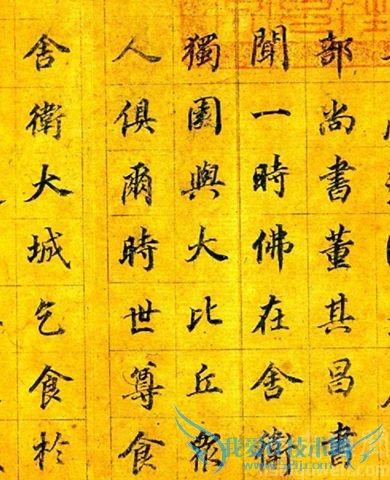 部尚書董其昌書
聞一時佛在舍衛
獨園與大比丘衆
人俱爾時世尊食
舍衛大城乞食於